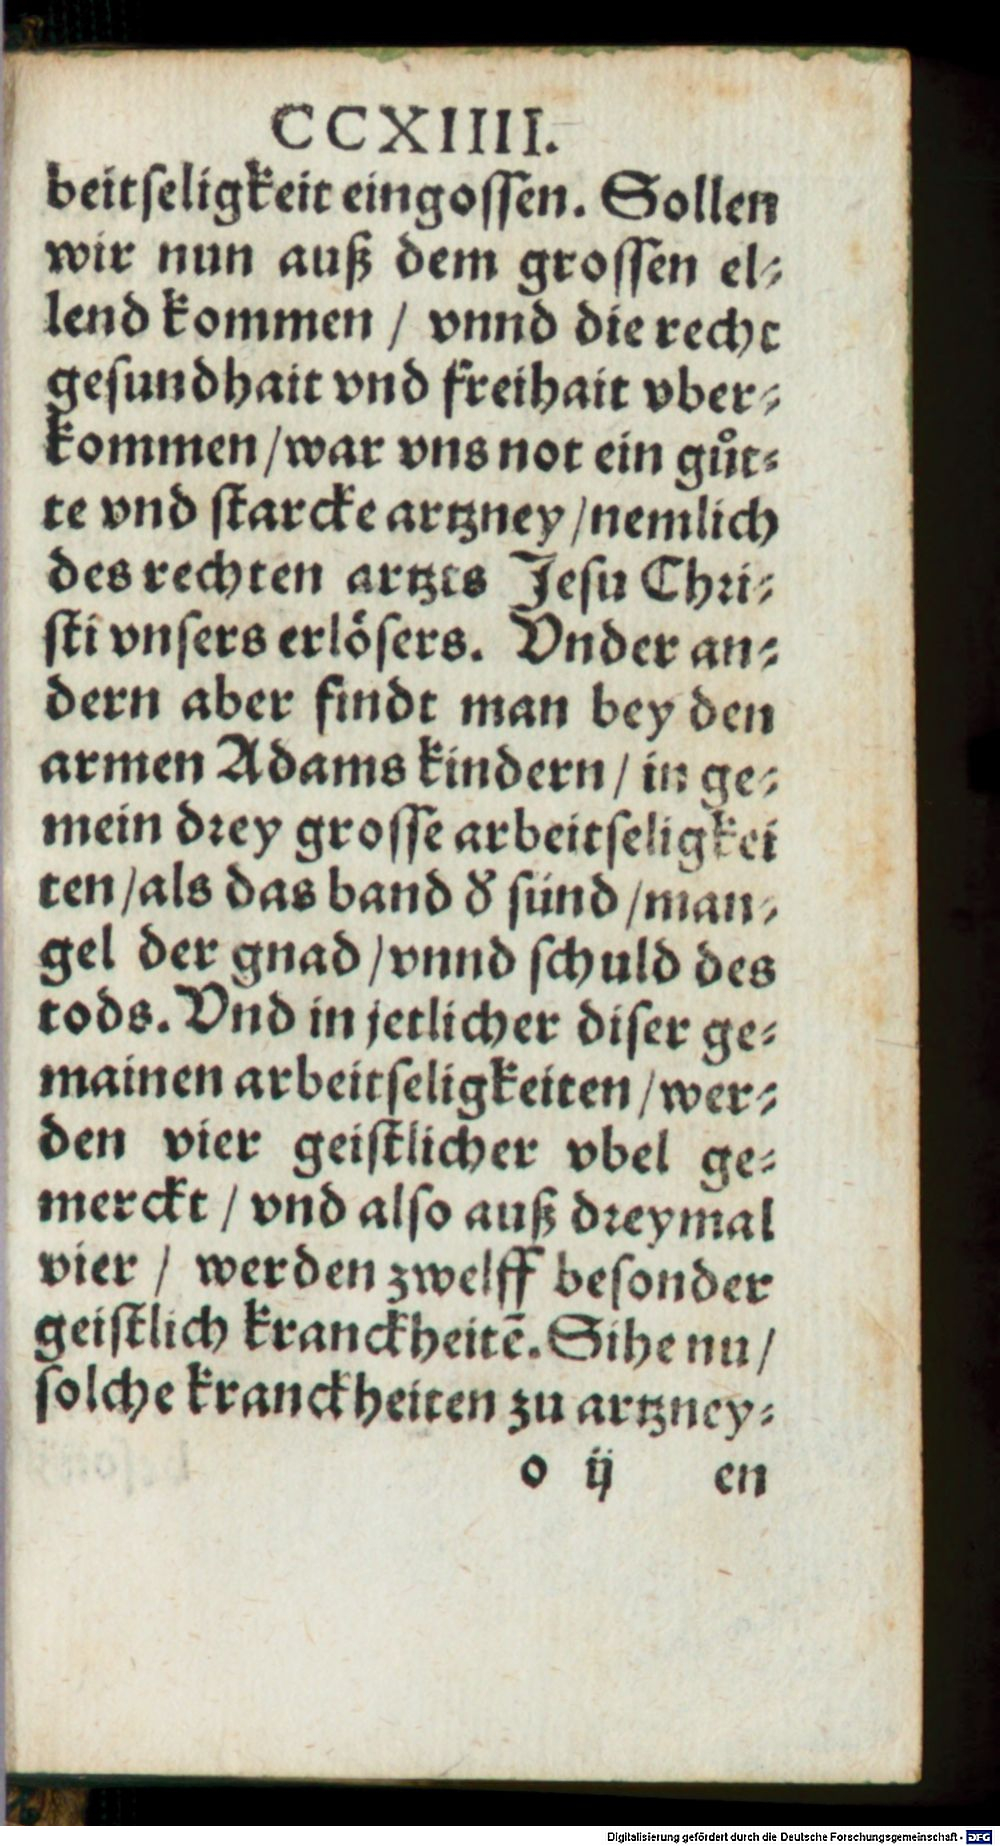 CCXIIII.
beitseligkeit eingossen. Sollen
wir nun auß dem grossen el⸗
lend kommen / vnnd die recht
gesundhait vnd freihait vber⸗
kommen / war vns not ein gůt⸗
te vnd starcke artzney / nemlich
des rechten artzts Jesu Chri⸗
sti vnsers erlösers. Vnder an⸗
dern aber findt man bey den
armen Adams kindern / in ge⸗
mein drey grosse arbeitseligkei
ten / als das band d̕ sünd / man⸗
gel der gnad / vnnd schuld des
tods. Vnd in jetlicher diser ge⸗
mainen arbeitseligkeiten / wer⸗
den vier geistlicher vbel ge⸗
merckt / vnd also auß dreymal
vier / werden zwelff besonder
geistlich kranckheitē. Sihe nu /
solche kranckheiten zu artzney⸗
o ij en
Digitalisierung gefördert durch die Deutsche Forschungsgemeinschaft - DFG